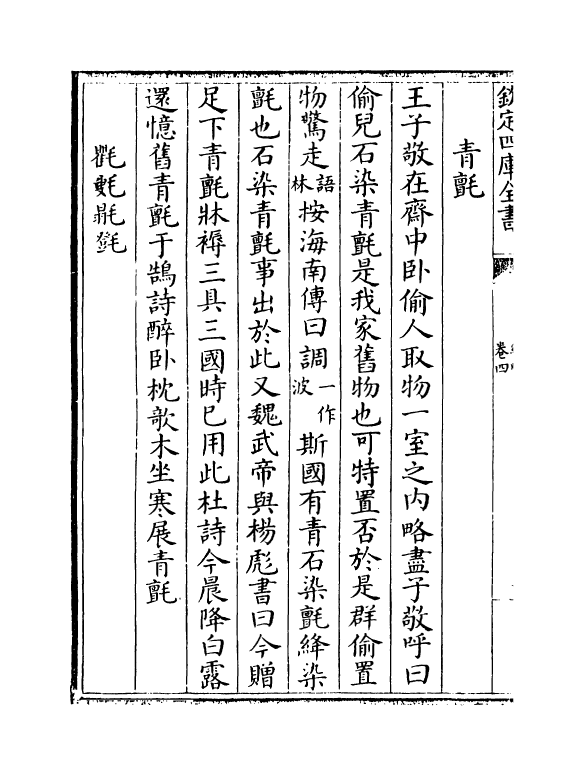 欽定四庫全書 卷四
青氈
王子敬在齋中卧偷人取物一室之内略盡子敬呼曰
偷兒石染青氈是我家舊物也可特置否於是群偷置
物驚走語林按海南傳曰調一作波斯國有青石染氈絳染
氈也石染青氈事出於此又魏武帝與楊彪書曰今贈
足下青氈牀褥三具三國時已用此杜詩今晨降白露
還憶舊青氈于鵠詩醉卧枕欹木坐寒展青氈
氍氀毾㲪